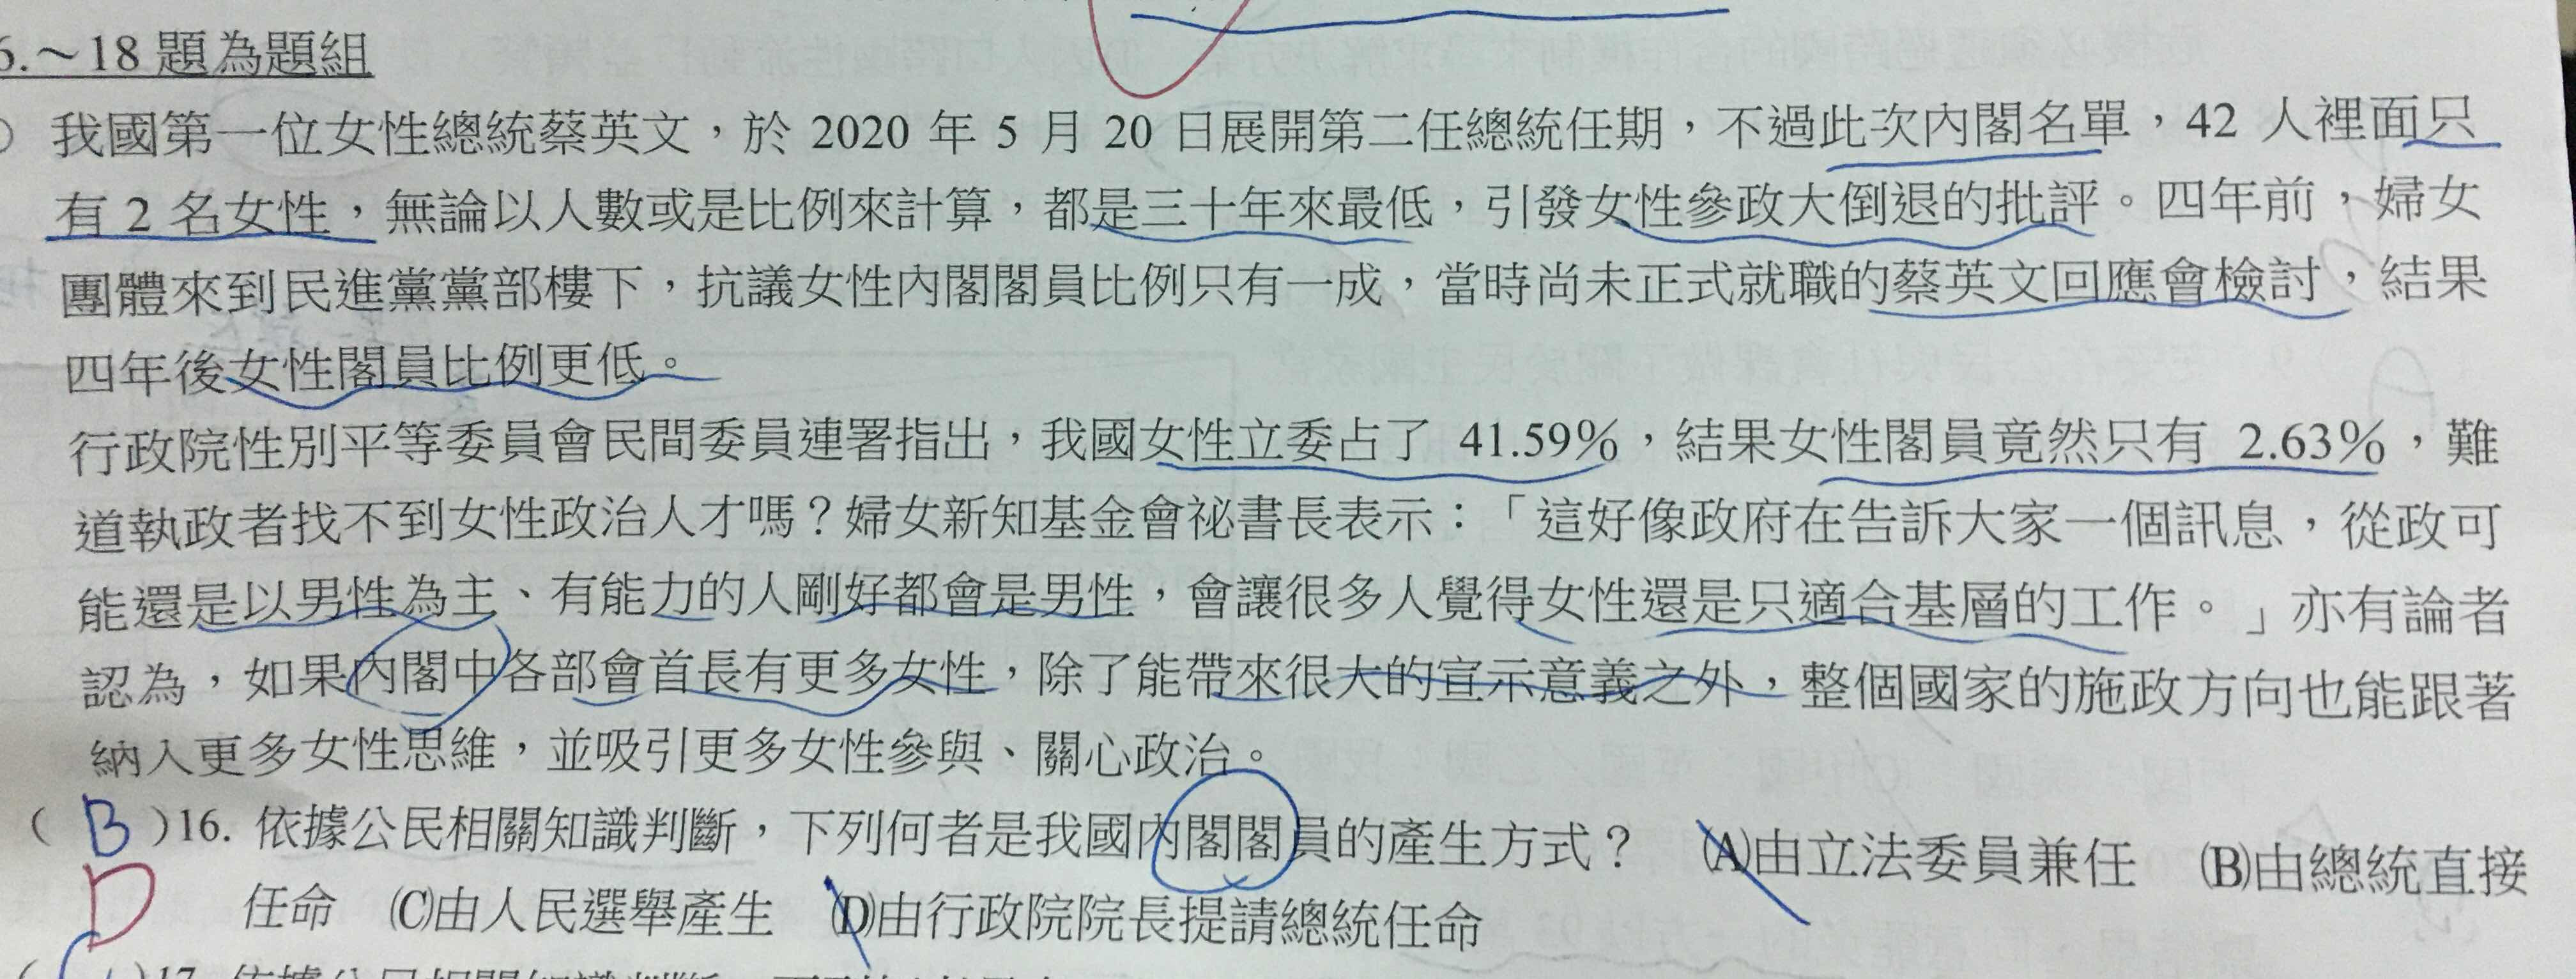 6.～18 題為題組
我國第一位女性總統蔡英文，於 2020 年 5 月 20 日展開第二任總統任期，不過此次內閣名單，42 人裡面只
有 2 名女性，無論以人數或是比例來計算，都是三十年來最低，引發女性參政大倒退的批評。四年前，婦女
團體來到民進黨黨部樓下，抗議女性內閣閣員比例只有一成，當時尚未正式就職的蔡英文回應會檢討，結果
四年後女性閣員比例更低。
行政院性別平等委員會民間委員連署指出，我國女性立委占了 41.59%，結果女性閣員竟然只有 2.63%，難
道執政者找不到女性政治人才嗎？婦女新知基金會祕書長表示：「這好像政府在告訴大家一個訊息，從政可
能還是以男性為主、有能力的人剛好都會是男性，會讓很多人覺得女性還是只適合基層的工作。」亦有論者
認為，如果內閣中各部會首長有更多女性，除了能帶來很大的宣示意義之外，整個國家的施政方向也能跟著
納入更多女性思維，並吸引更多女性參與、關心政治。
( B )16. 依據公民相關知識判斷，下列何者是我國內閣閣員的產生方式？ (A)由立法委員兼任 (B)由總統直接
D 任命 (C)由人民選舉產生 (D)由行政院院長提請總統任命
)17. 依據公民相關知識判斷